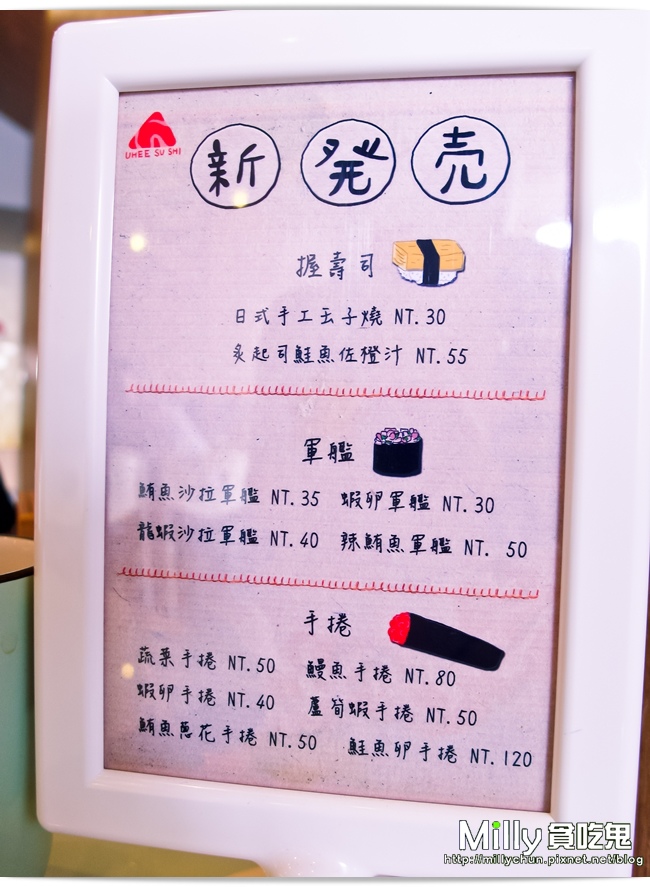 UHEE SU SHI
新 発 売
握壽司
日式手工玉子燒 NT.30
炙起司鮭魚佐橙汁 NT.55
軍艦
鮪魚沙拉軍艦 NT.35 蝦卵軍艦 NT.30
龍蝦沙拉軍艦 NT.40 辣鮪魚軍艦 NT. 50
手捲
蔬菜手捲 NT.50 鰻魚手捲 NT.80
蝦卵手捲 NT.40 蘆筍蝦手捲 NT.50
鮪魚蔥花手捲 NT.50 鮭魚卵手捲 NT.120
Milly 貪吃鬼
http://millychun.pixnet.net/blog